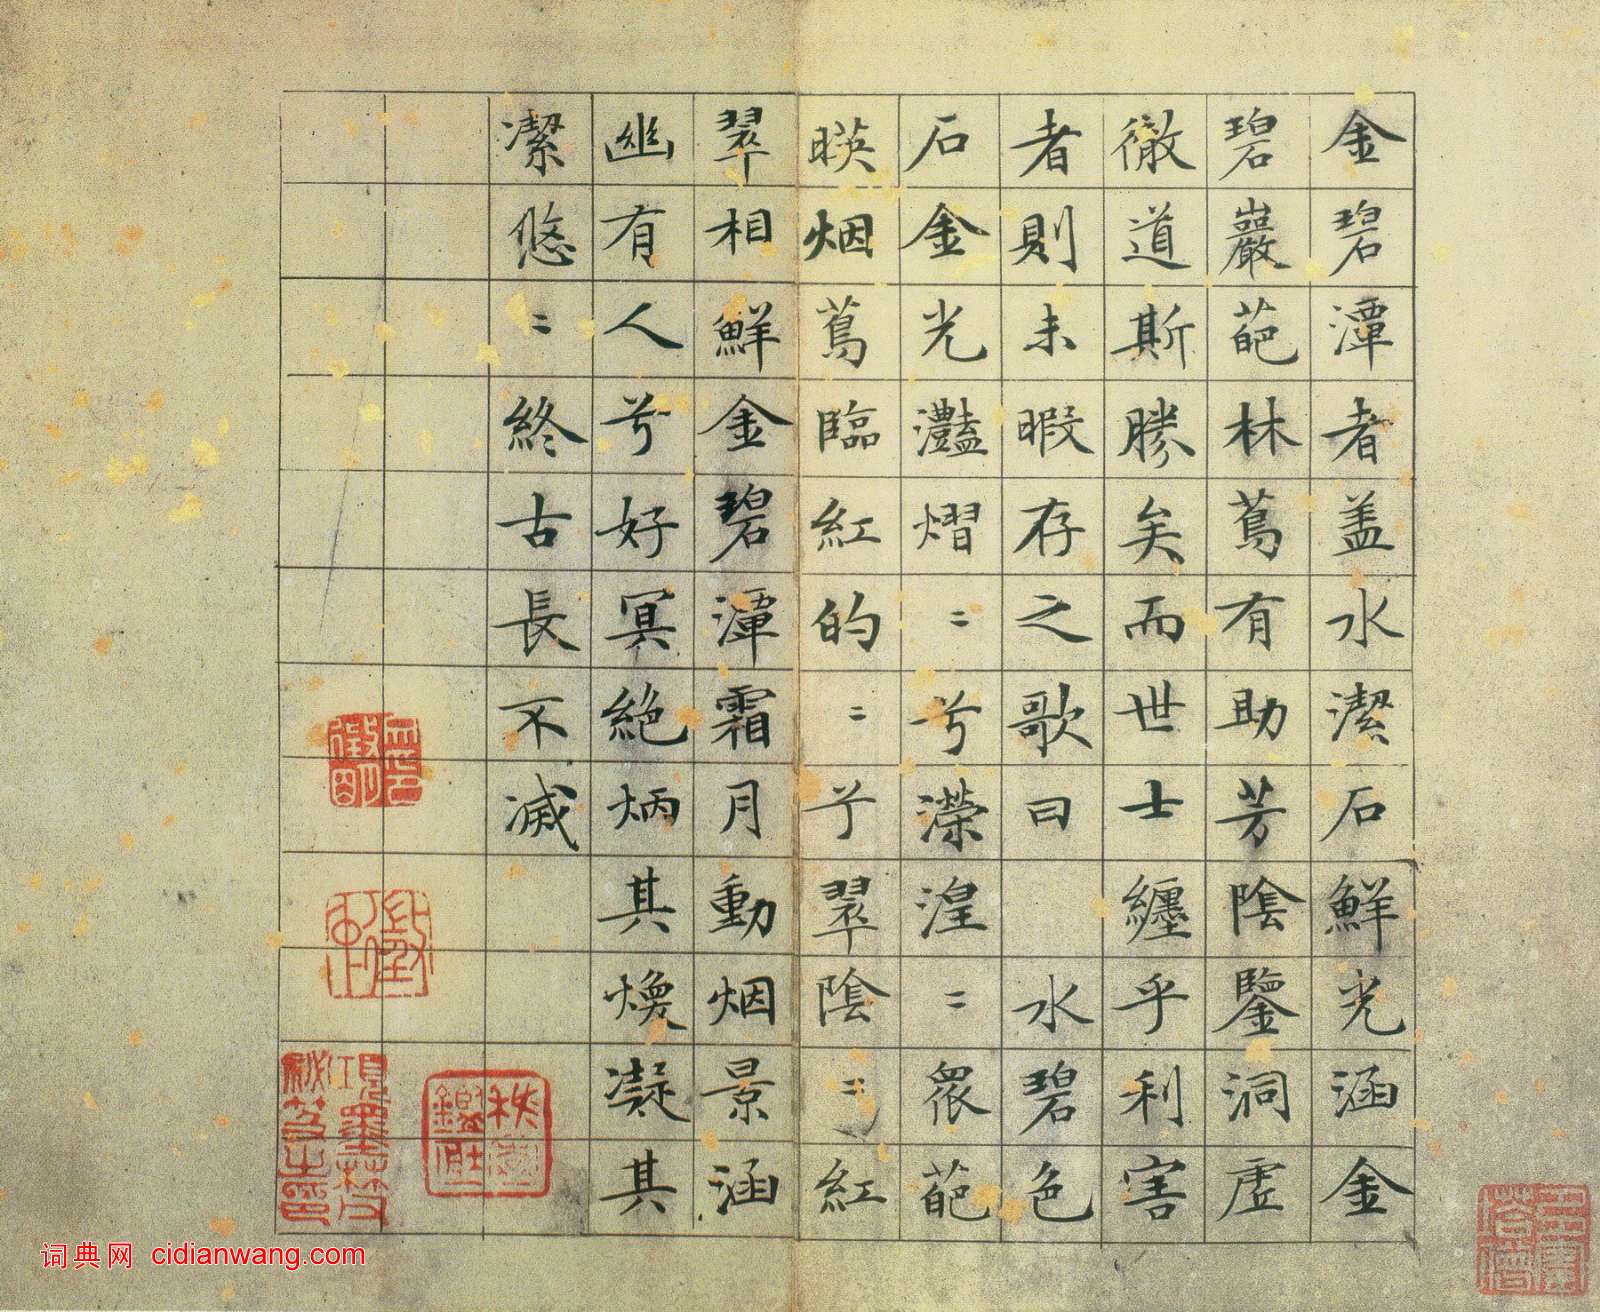 金碧潭者盖水潔石鮮光涵金
碧巖葩林蔦有助芳陰鑒洞虛
徹道斯勝矣而世士纏乎利害
者則未暇存之歌曰 水碧色
石金光灩熠〻兮濴湟〻衆葩
暎烟蔦臨紅的〻兮翠陰〻紅
翠相鮮金碧潭霜月動烟景涵
幽有人兮好冥絕炳其煥凝其
潔悠〻終古長不滅
項墨林父秘笈之印
词典网 cidianwang.com